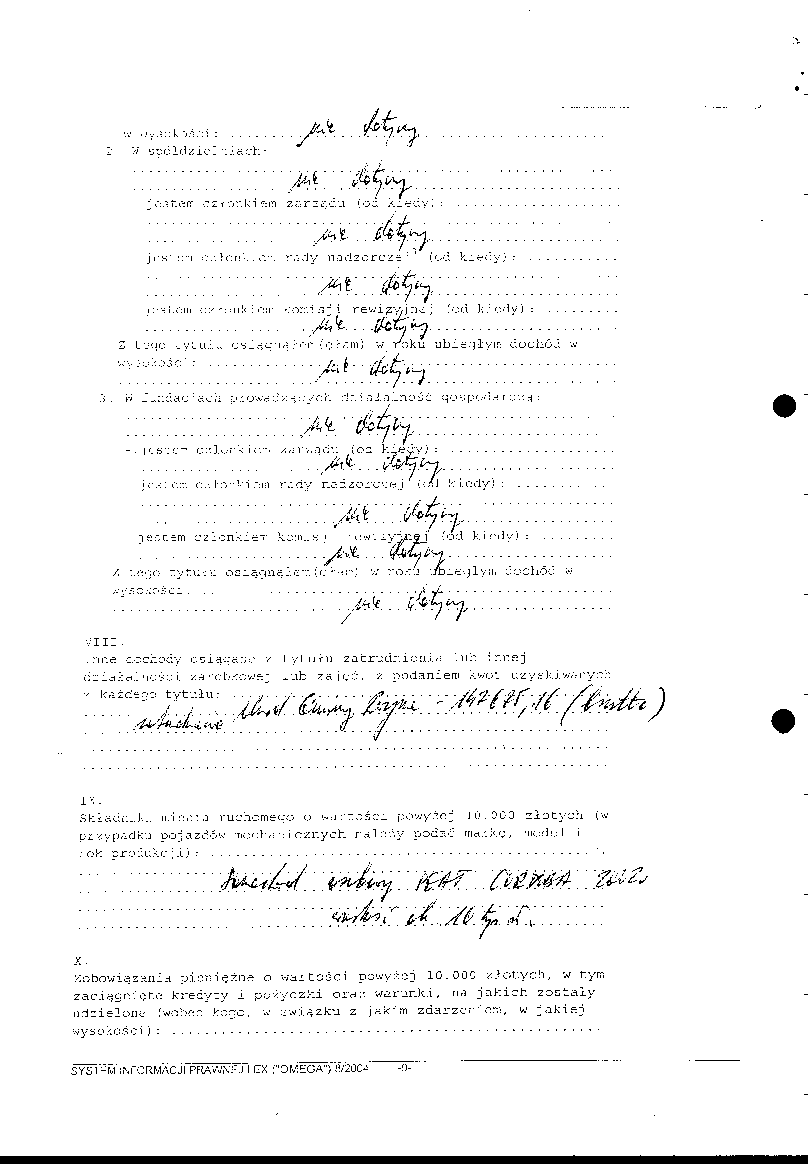 w wysokości: .......... nie dotyczy
2. W spółdzielniach:
nie dotyczy
jestem członkiem zarządu (od kiedy):
nie dotyczy
jestem członkiem rady nadzorczej (od kiedy):
nie dotyczy
jestem członkiem komisji rewizyjnej (od kiedy):
nie dotyczy
Z tego tytułu osiągnąłem(ęłam) w roku ubiegłym dochód w
wysokości: nie dotyczy
3. W fundacjach prowadzących działalność gospodarczą:
nie dotyczy
- jestem członkiem zarządu (od kiedy):
nie dotyczy
jestem członkiem rady nadzorczej (od kiedy):
nie dotyczy
jestem członkiem komisji rewizyjnej (od kiedy):
nie dotyczy
Z tego tytułu osiągnąłem(ęłam) w roku ubiegłym dochód w
wysokości:
nie dotyczy
VIII.
Inne dochody osiągane z tytułu zatrudnienia lub innej
działalności zarobkowej lub zajęć, z podaniem kwot uzyskiwanych
z każdego tytułu:
Urząd Gminy - 147 685,16 (brutto)
IX.
Składniki mienia ruchomego o wartości powyżej 10.000 złotych (w
przypadku pojazdów mechanicznych należy podać markę, model i
rok produkcji):
Samochód osobowy SEAT CORDOBA 2002
wartość ok 10 tys zł.
X.
Zobowiązania pieniężne o wartości powyżej 10.000 złotych, w tym
zaciągnięte kredyty i pożyczki oraz warunki, na jakich zostały
udzielone (wobec kogo, w związku z jakim zdarzeniem, w jakiej
wysokości):
SYSTEM INFORMACJI PRAWNEJ LEX ("OMEGA") 8/2004 -9-